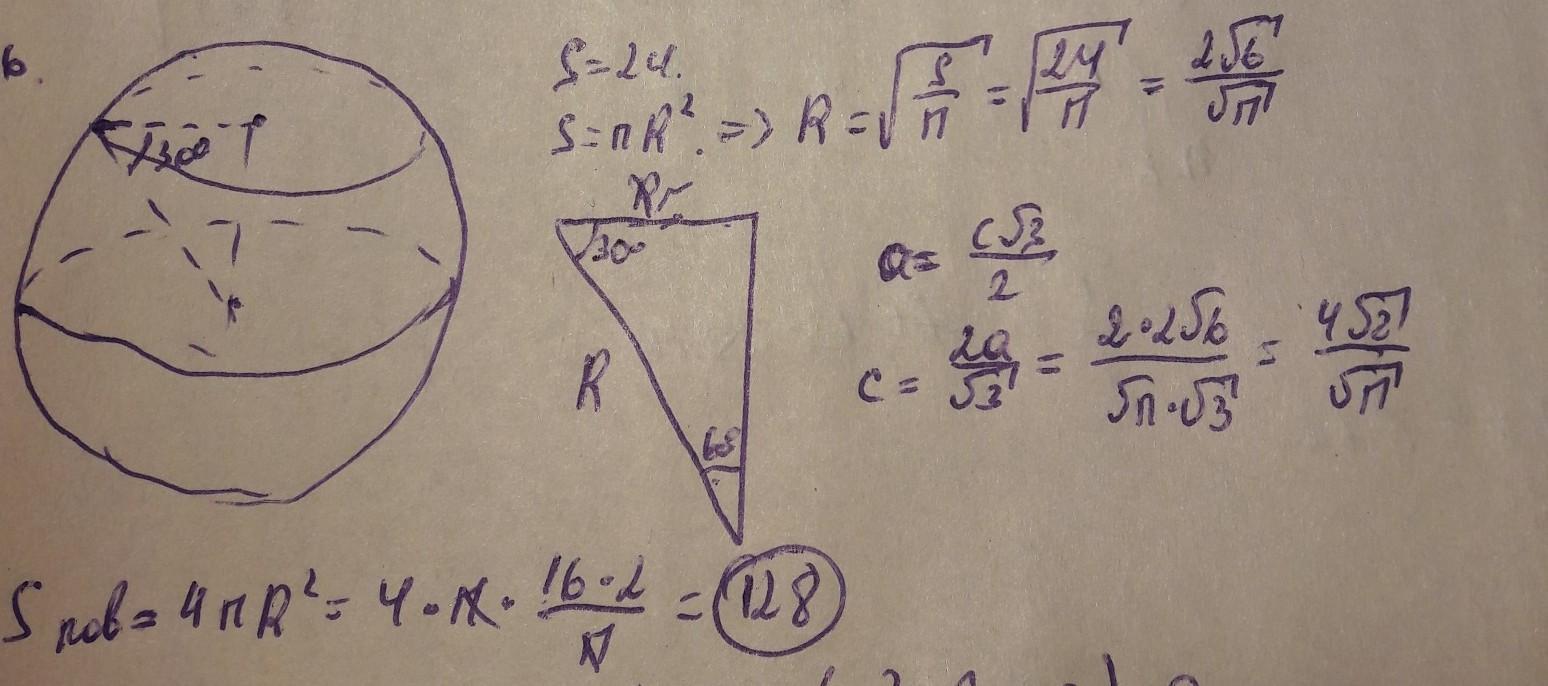 6.
S=24.
S=πR². => R=√(S/π)=√(24/π)=2√6/√π
30°
r
30°
R
60°
a=c√3/2
c=2a/√3=2·2√6/(√π·√3)=4√2/√π
Sпов=4πR²=4·π·16·2/π=128